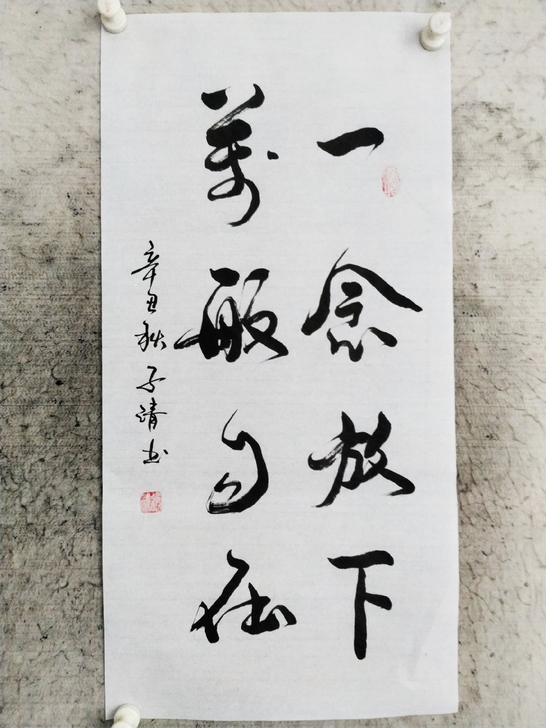 一念放下
萬般自在
辛丑秋子靖书